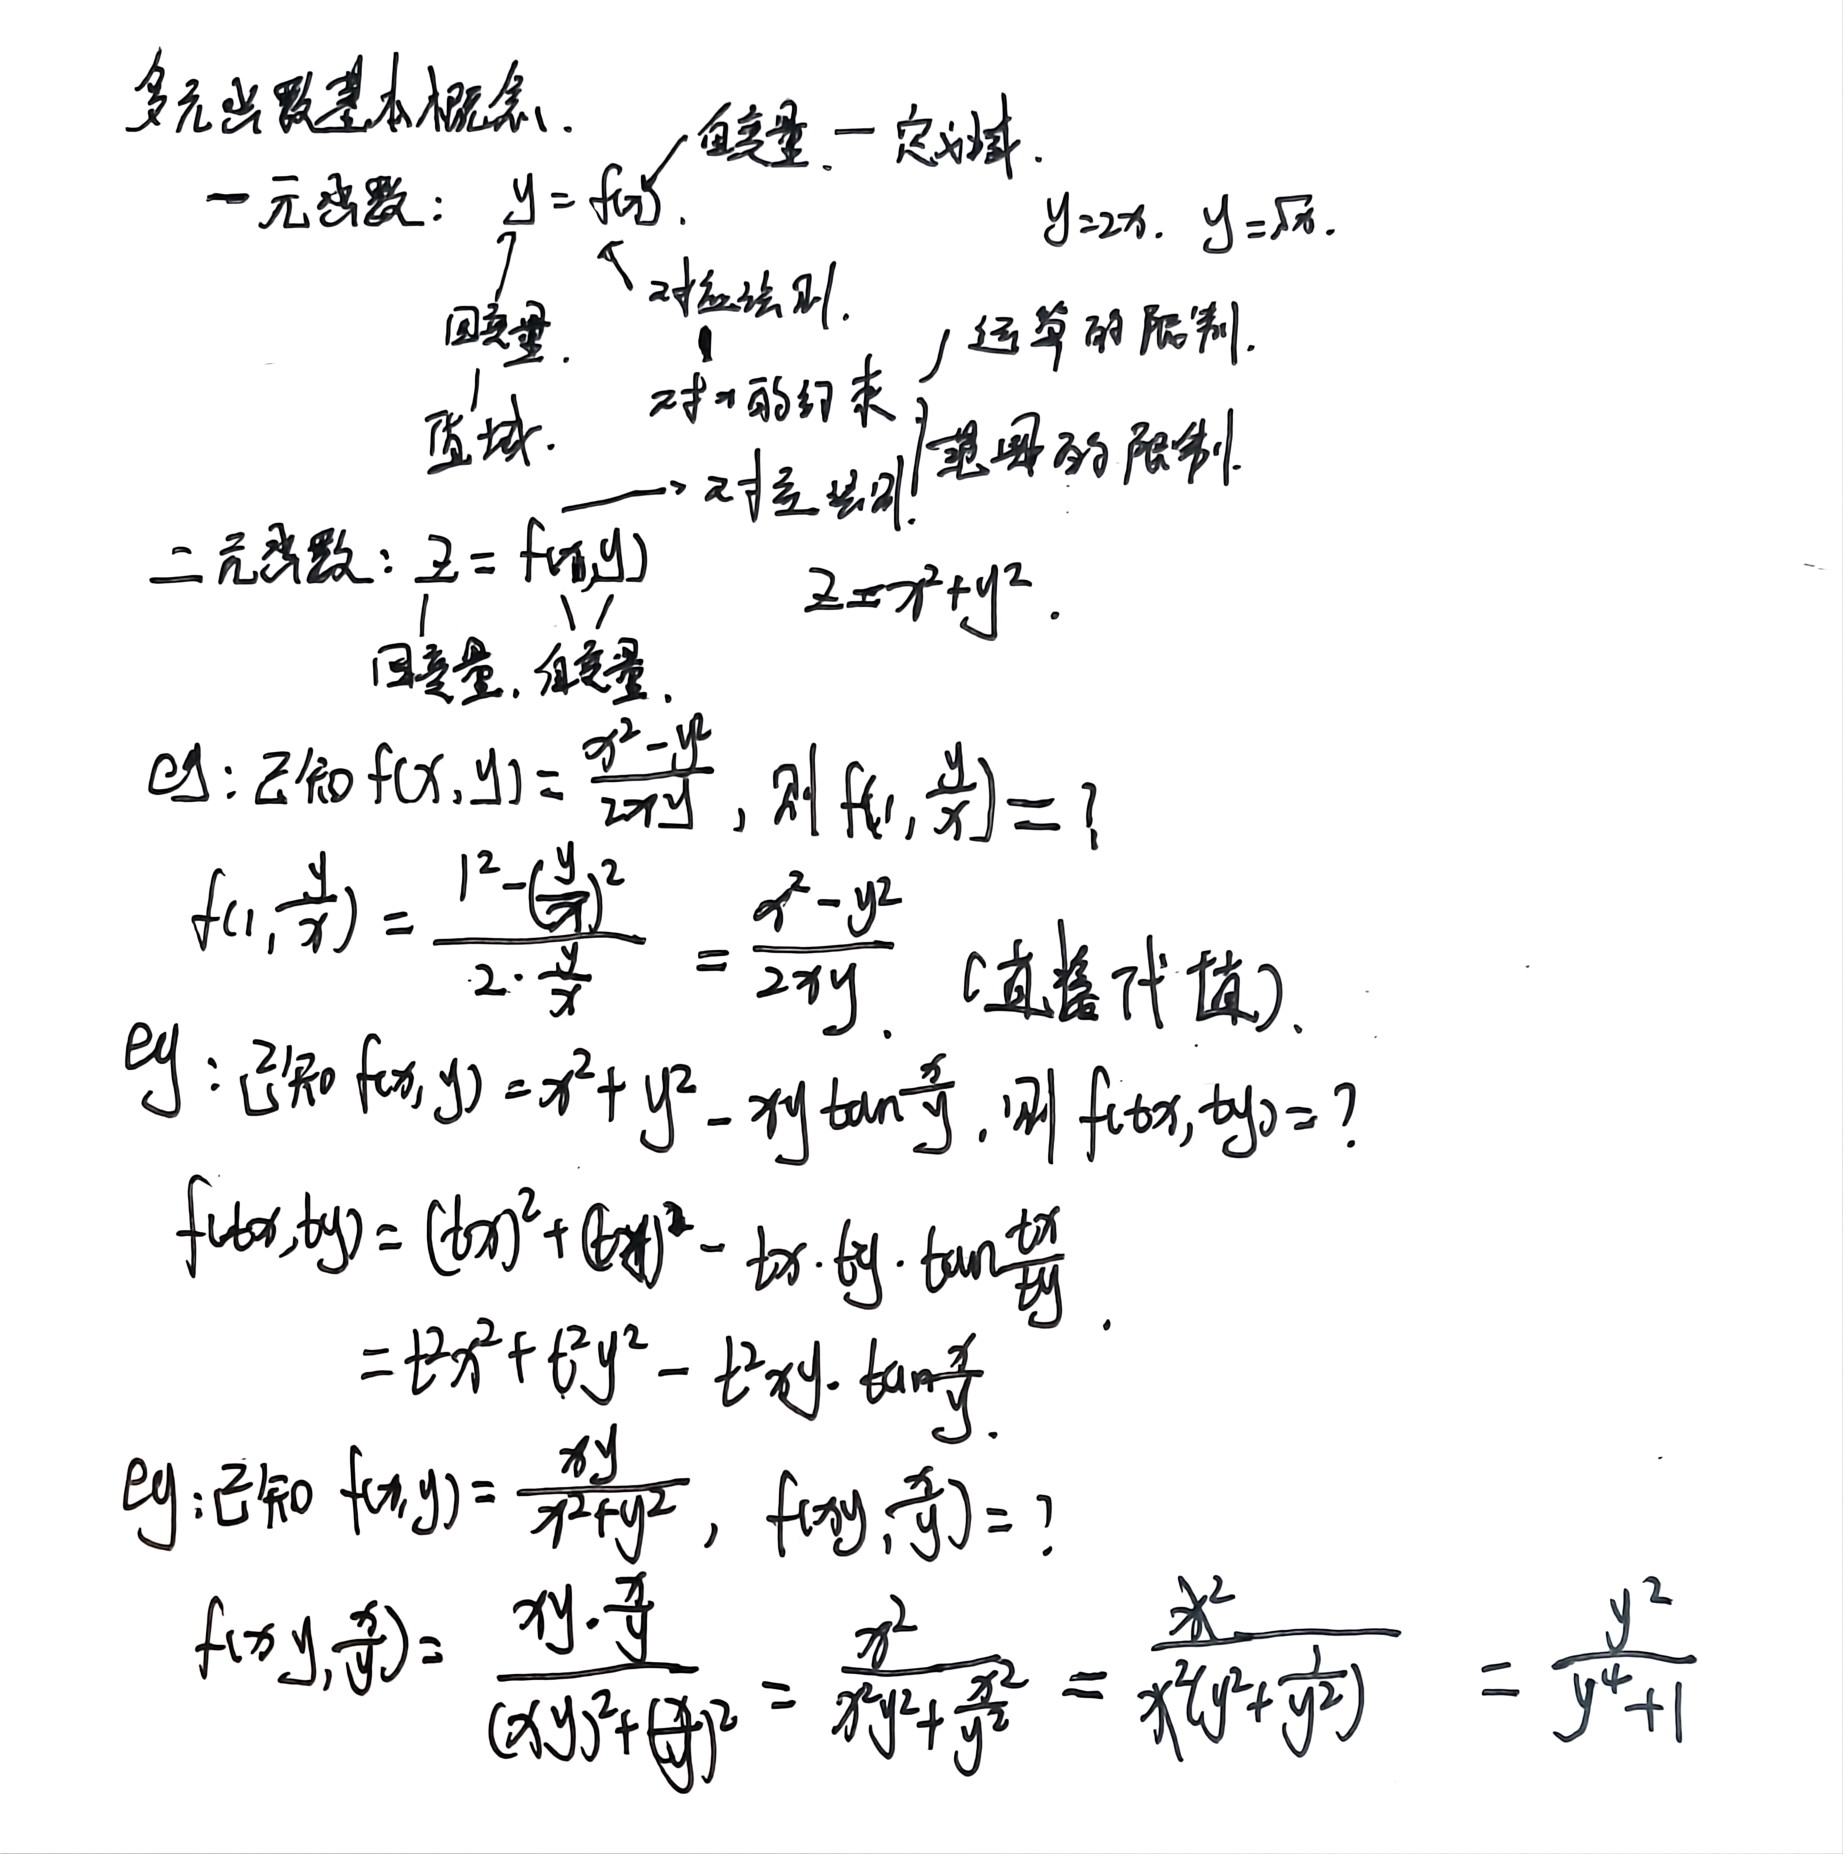 多元函数基本概念.
自变量.一定义域.
一元函数: y=f(x).
y=2x. y=√x.
对应法则.
因变量.
运算的限制.
对x的约束
值域.
题目的限制.
对应法则.
二元函数: z=f(x,y)
z=x²+y².
因变量. 自变量.
eg:已知f(x,y)=(x²-y²)/(2xy), 则f(1,y/x)=?
f(1,y/x)=(1²-(y/x)²)/(2·y/x)=(x²-y²)/(2xy). (直接代值).
eg:已知f(x,y)=x²+y²-xytan x/y. 则f(tx,ty)=?
f(tx,ty)=(tx)²+(ty)²-tx·ty·tan tx/ty.
=t²x²+t²y²-t²xy·tan x/y.
eg:已知f(x,y)=xy/(x²+y²), f(xy,x/y)=?
f(xy,x/y)=(xy·x/y)/((xy)²+(x/y)²)=x²/(x²y²+x²/y²)=x²/(x²(y²+1/y²))=y²/(y⁴+1)